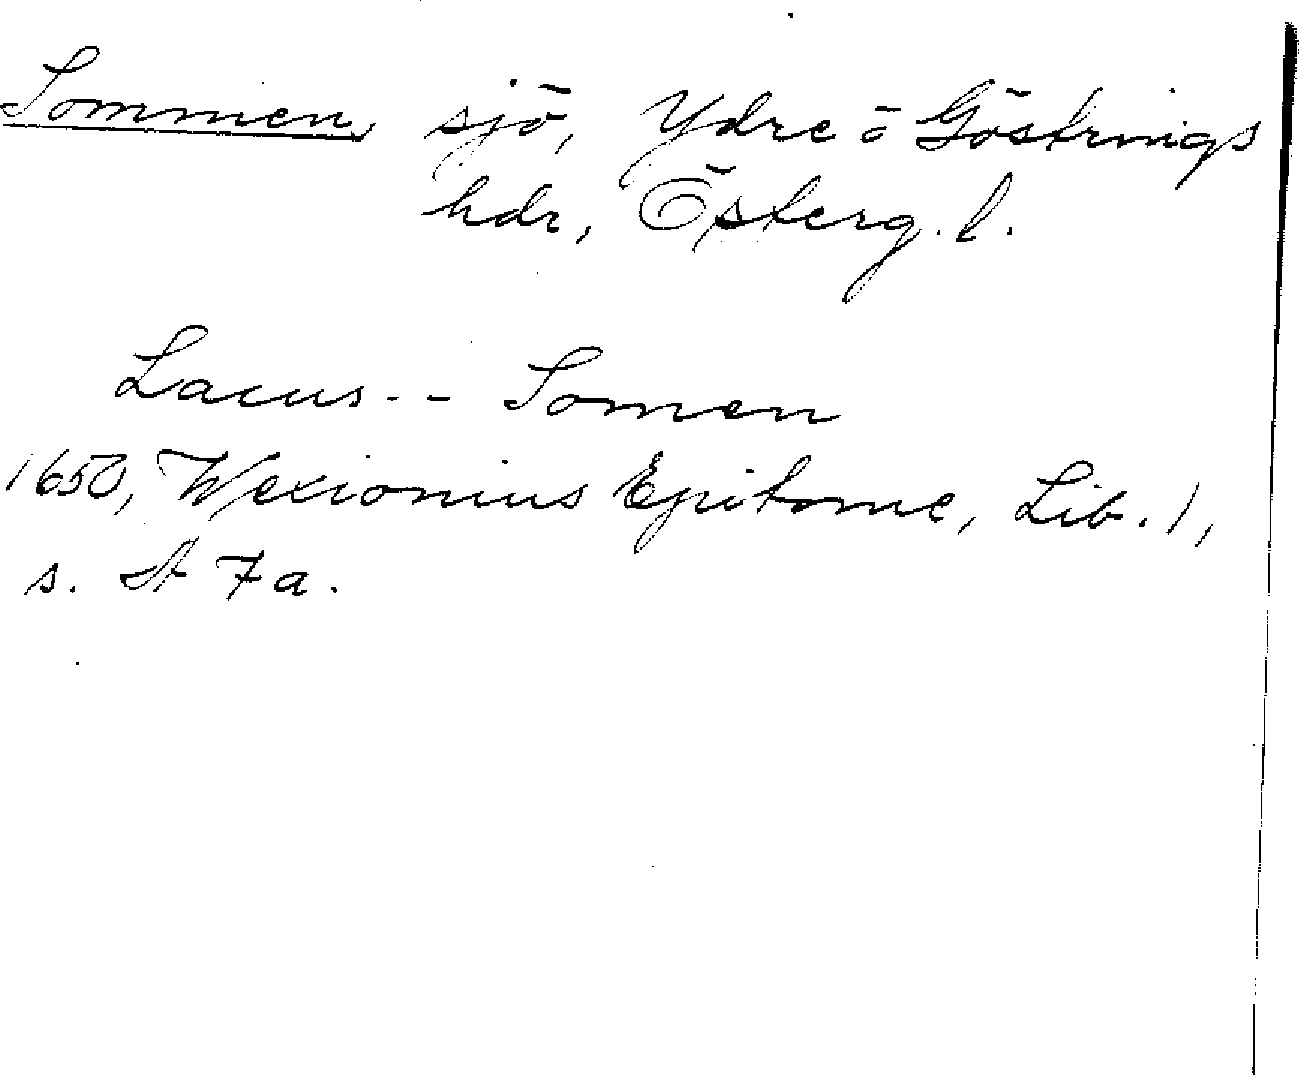 Sommen, sjö, Ydre o Göstrings
hdr, Österg. l.
Lacus -- Somen
1650, Wexionius Epitome, Lib. 1,
s. A 7 a.